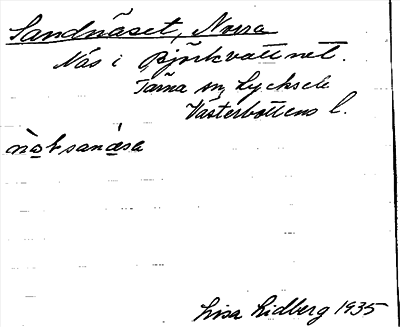 Sandnäset, Norra
Näs i Björkvattnet.
Tärna sn, Lycksele
Västerbottens l.
nòƀsanǻra
Lisa Lidberg 1935